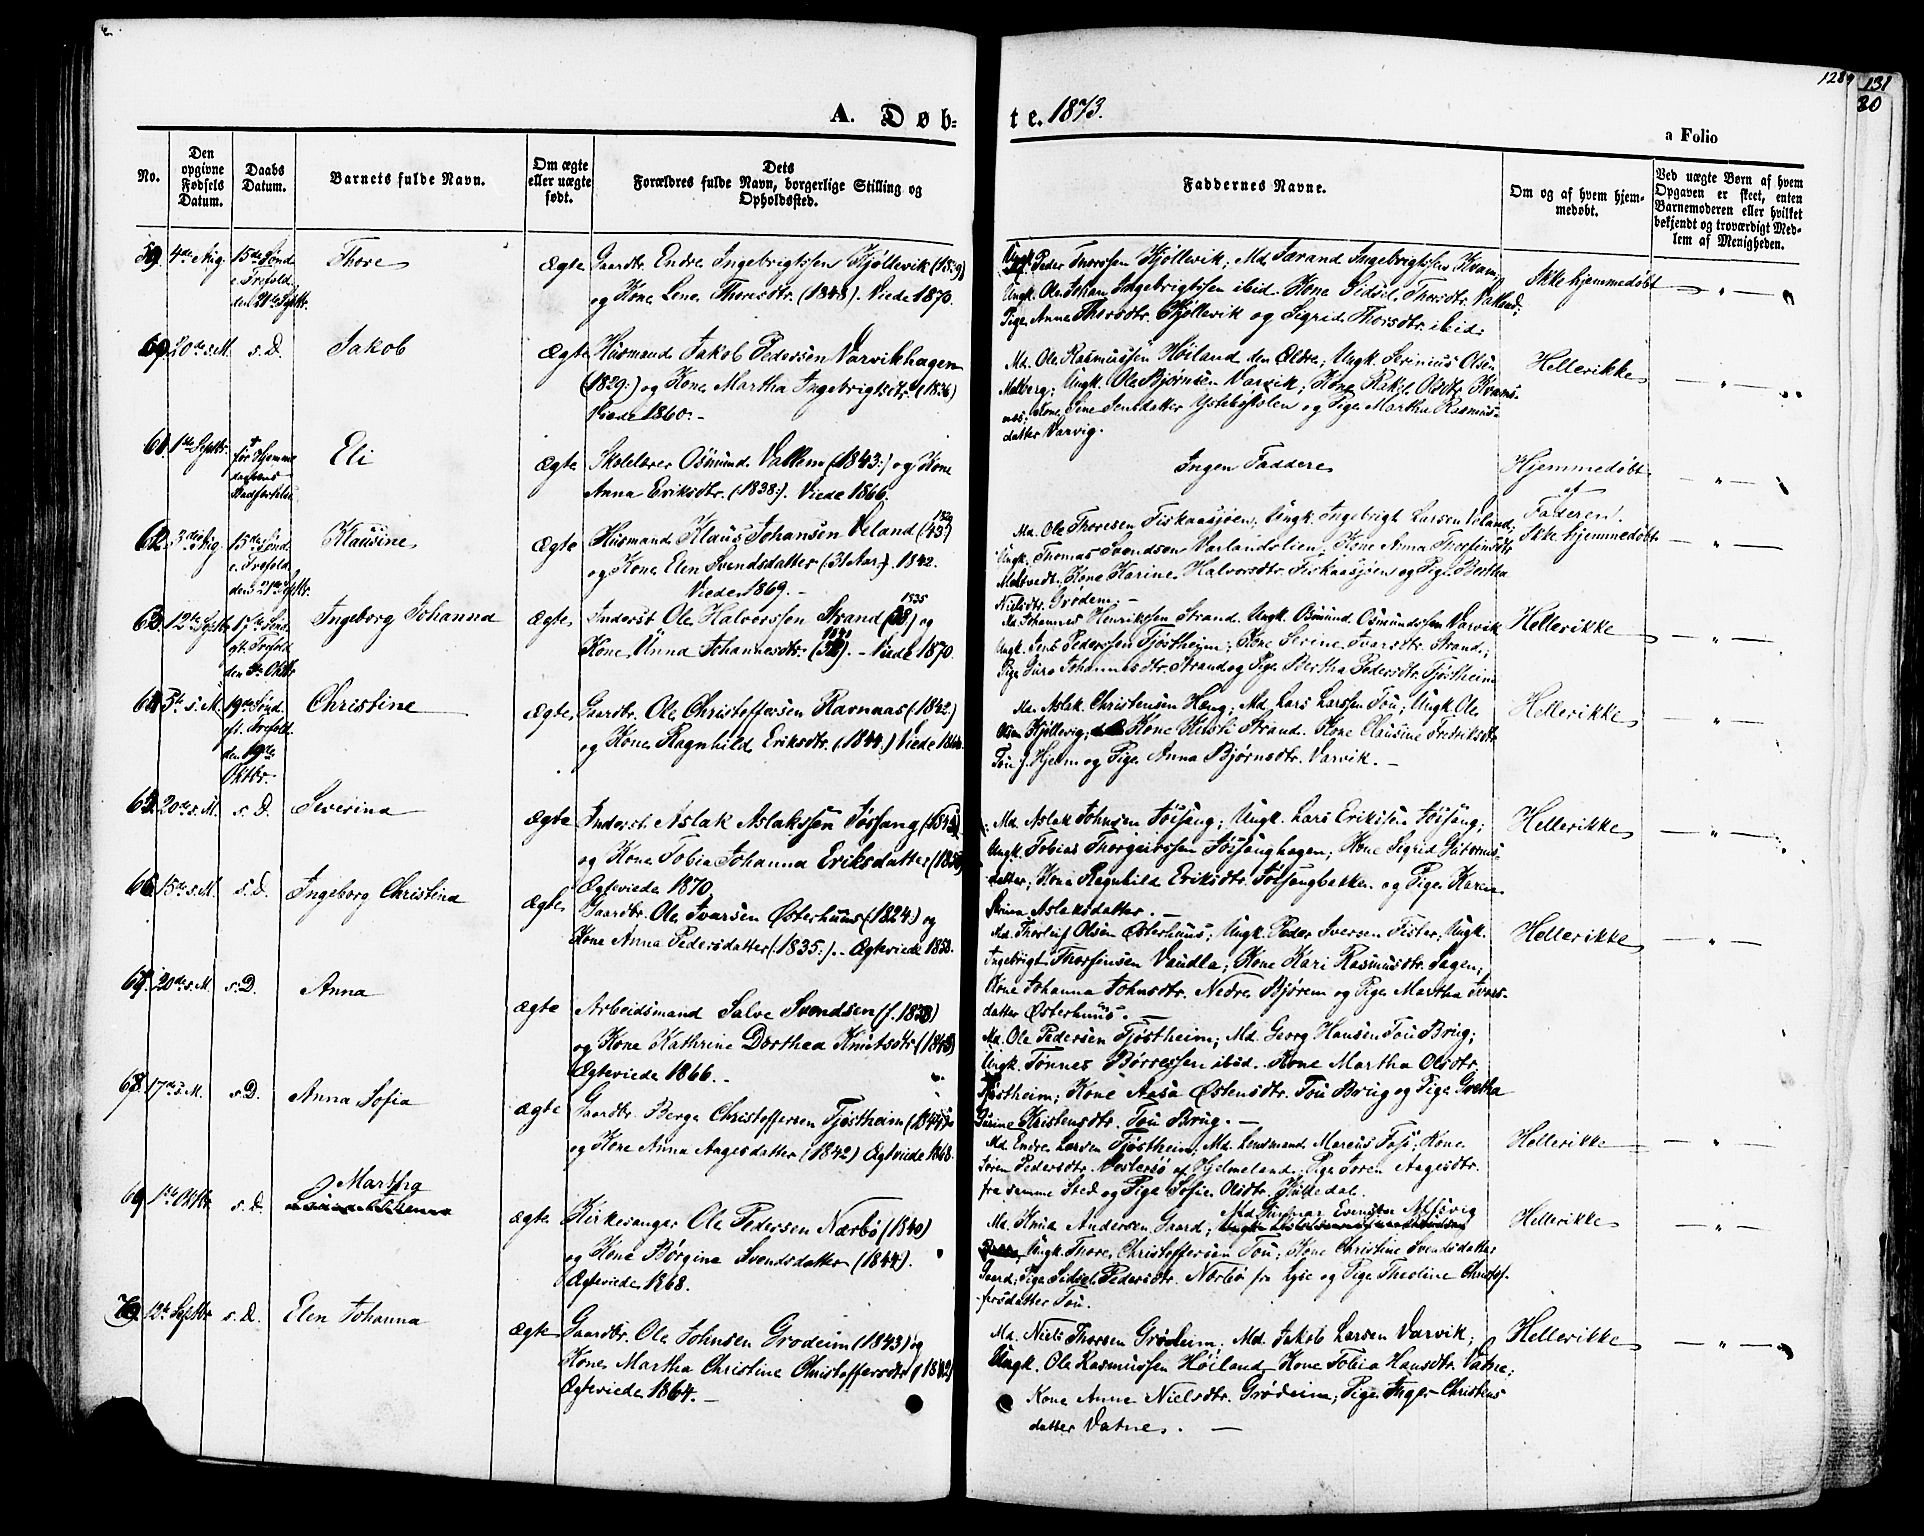 128
131
20
A. Døb-
te. 1873.
a Folio
No.
Den opgivne Fødsels Datum.
Daabs Datum.
Barnets fulde Navn.
Om ægte eller uægte født.
Dets Forældres fulde Navn, borgerlige Stilling og Opholdssted.
Faddernes Navne.
Om og af hvem hjemmedøbt.
Ved uægte Børn af hvem Opgaven er skeet, enten Barnemoderen eller hvilket bekjendt og troværdigt Medlem af Menigheden.
59. 4de Aug. 15de Sönd. e. Trefold. den 21de Septbr. Thore Ægte
Gaardbr. Endre Ingebrigtssen Kjøllevik (1839)
og Kone Lene Thoresdtr. (1848). Viede 1870.
Ungk. Peder Thorssen Kjøllevik; Md. Sarand Ingebrigtssen Kvam;
Ungk. Ole Johan Ingebrigtssen ibid. Kone Sidsel Thorsdtr. Valland;
Pige Anne Thorsdtr. Kjøllevik og Sigrid Thorsdtr. ibid.
Ikke hjemmedøbt — " —
60. 20de s. M. s. D. Jakob Ægte
Husmand Jakob Pedersen Varvikhagen
(1829:) og Kone Martha Ingebrigtsdtr. (1836)
Viede 1860. -
Md. Ole Rasmussen Höiland den Ældre; Ungk. Serinius Olsen
Molberg; Ungk. Ole Bjørnsen Varvik; Kone Rakil Olsdtr. Kvams-
næs; Kone Sine Jensdatter Ystebøstølen og Pige Martha Rasmus-
datter Varvig.
Hellerikke — " —
61. 1ste Septbr. † før Hjemmedaabens Stadfæstelse Eli Ægte
Skolelærer Osmund Valkem (1843:) og Kone
Anna Eriksdtr. (1838:). Viede 1866.
Ingen Faddere
Hjemmedøbt af Faderen. — " —
62. 3die Aug. 15de Sönd. e. Trefold. den 21de Septbr. Klausine Ægte
Husmand Klaus Johansen Veland (45)
og Kone Elen Svendsdatter (31 Aar) 1842.
Viede 1869. -
Md. Ole Thoresen Fiskaasjøen; Ungk. Ingebrigt Larsen Veland;
Ungk. Thomas Svendsen Varlandslien; Kone Anna Thorsensdtr.
Moltvedt. Kone Karine Halvorsdtr. Fiskaasjøen og Pige Bertha
Nielsdtr. Grødem. —
Ikke hjemmedøbt — " —
63. 12te Septbr. 17de Sönd. eft. Trefold. den 5te Oktbr. Ingeborg Johanna Ægte
1835
Inderst Ole Halvorssen Strand (38) og
Kone Unna Johannesdtr. (32). - Viede 1870
Md. Johannes Henrikssen Strand. Ungk. Osmund Osmundssen Varvik
Ungk. Jens Pederssen Tjøstheim; Kone Serine Ivarsdtr. Strand;
Pige Guro Johannesdtr. Strand og Pige Bertha Pedersdtr. Tjøstheim
Hellerikke — " —
64. 5te s. M. 19de Sönd. ft. Trefold. den 19de Oktbr. Christine Ægte
Gaardbr. Ole Christoffersen Ravnaas (1842.)
og Kone Ragnhild Eriksdtr. (1844.) Viede 1866.
Md. Aslak Christensen Heng; Md. Lars Larssen Tou; Ungk. Ole
Olsen Kjøllevig; Kone Kersti Strand. Kone Clausine Fredriksdtr.
Tou f. Hjelm og Pige Anna Bjørnsdtr. Varvik. —
Hellerikke — " —
65. 20de s. M. s. D. Severina Ægte
Inderst. Aslak Aslakssen Jøssang (1843)
og Kone Tobia Johanna Eriksdatter (1850)
Ægteviede 1870.
Md. Aslak Johnsen Jøssang; Ungk. Lars Erikssen Jøssang;
Ungk. Tobias Thorgeirssen Jøssanghagen; Kone Sigrid Guttorms-
datter; Kone Ragnhild Eriksdtr. Jøssangbakken og Pige Karen
Serina Aslaksdatter. —
Hellerikke — " —
66. 15de s. M. s. D. Ingeborg Christina Ægte
Gaardbr. Ole Ivarsen Østerhuus (1824) og
Kone Anna Pedersdatter (1835:). - Ægteviede 1858.
Md. Thorleif Olsen Østerhuus; Ungk. Peder Iversen Fister; Ungk.
Ingebrigt Thorsensen Vaudla; Kone Kari Rasmusdtr. Sagen;
Kone Johanna Johnsdtr. Nedre Bjørem og Pige Martha Ivars-
datter Østerhuus. —
Hellerikke — " —
67. 20de s. M. s. D. Anna Ægte
Arbeidsmand Salve Svendsen (f. 1838)
og Kone Kathrine Dorthea Knutsdtr. (1843)
Ægteviede 1866. -
Md. Ole Pedersen Tjøstheim; Md. Georg Hansen Tou Brug;
Ungk. Tønnes Børressen ibid. Kone Martha Olsdtr.
Tjøstheim; Kone Aasa Østensdtr. Tou Brug og Pige Gretha
Gurine Kristensdtr. Tou Brug. —
68. 17de s. M. s. D. Anna Sofia Ægte
Gaardbr. Berge Christoffersen Tjøstheim (1844)
og Kone Anna Aagesdatter (1842) Ægteviede 1868.
Md. Endre Larsen Tjøstheim; Md. Lensmand Marcus Fasi; Kone
Soren Pedersdtr. Vestersø af Hjelmeland; Pige Soren Aagesdtr.
fra samme Sted og Pige Sofie Olsdtr. Hulledal.
Hellerikke — " —
69. 1ste Oktbr. s. D. Martha Ægte
Kirkesanger Ole Pedersen Nærbø (1840)
og Kone Børgine Svendsdatter (1844).
Ægteviede 1868.
Md. Knud Andersen Gaard; Md. Gunnar Evensen Alsvig
Ungk. Thore Christoffersen Tou; Kone Christine Svendsdatter
Gaard; Pige Sidsel Pedersdtr. Nærbø fra Lyse og Pige Theoline Christof-
fersdatter Tou.
Hellerikke — " —
70. 13de Septbr. s. D. Elen Johanna Ægte
Gaardbr. Ole Johnsen Grodeim (1843) og
Kone Martha Christine Christoffersdtr. (1842)
Ægteviede 1864. —
Md. Niels Thorsen Grødeim; Md. Jakob Larsen Varvik;
Ungk. Ole Rasmussen Höiland; Kone Tobia Hansdtr. Vatne;
Kone Anne Nielsdtr. Grødeim; Pige Inger Christens-
datter Vatne. —
Hellerikke — " —